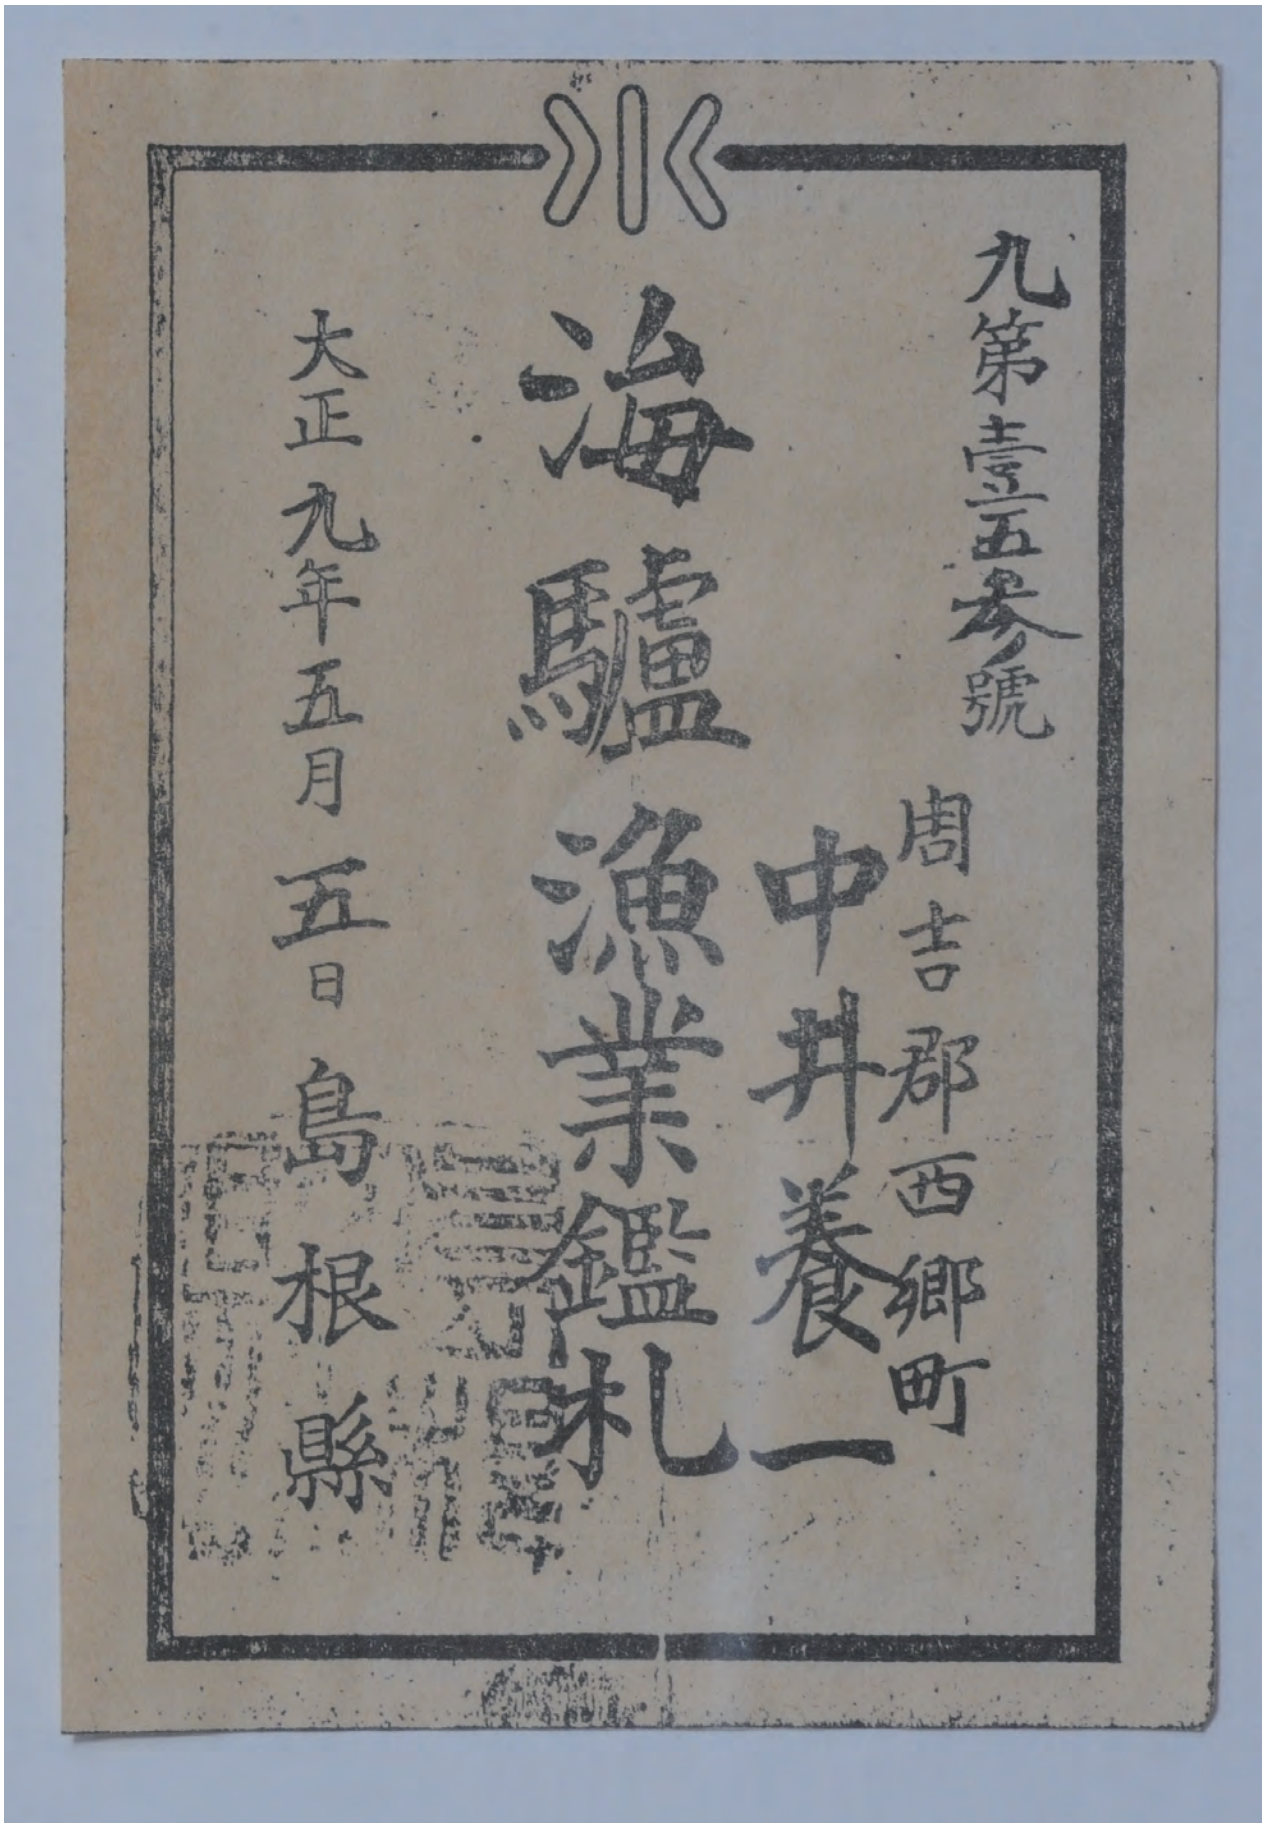 九第壹五参號
周吉郡西郷町
中井養一
海驢漁業鑑札
大正九年五月五日
島根縣